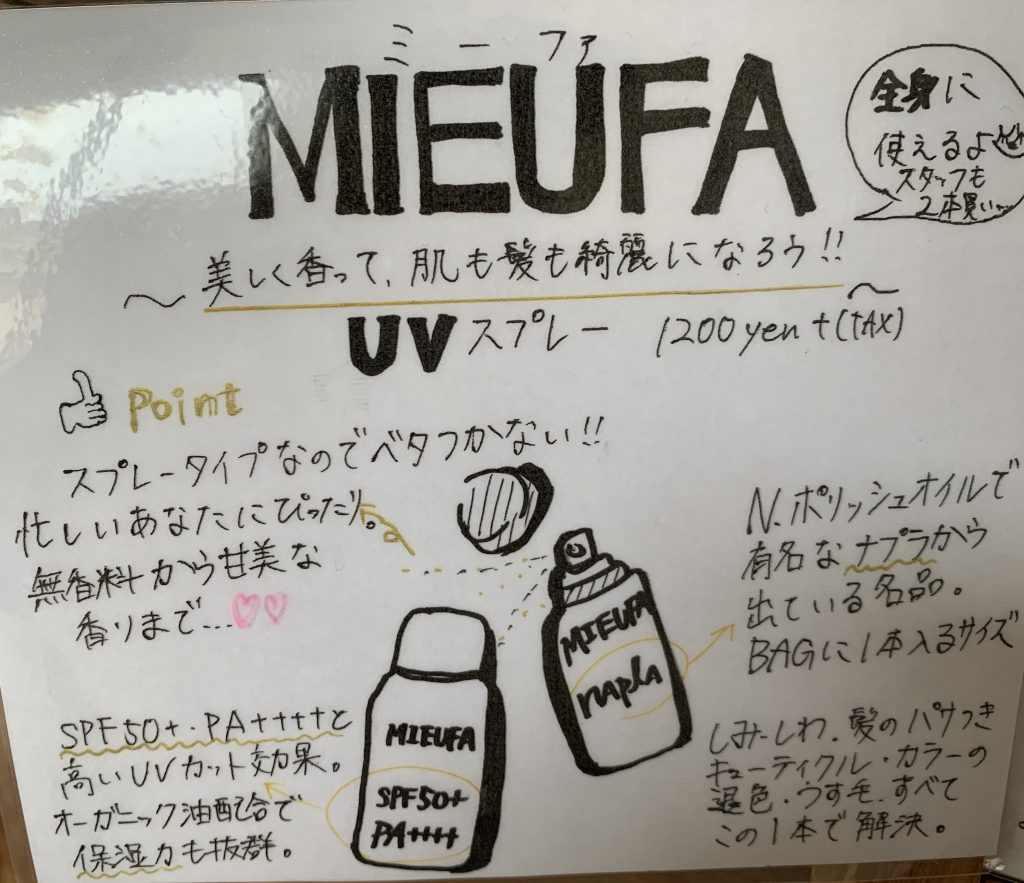 ミーファ
MIEUFA
全身に
使えるよ
スタッフも
2本買い
〜美しく香って、肌も髪も綺麗になろう!!〜
UVスプレー 1200yen+(TAX)
Point
スプレータイプなのでベタつかない!!
忙しいあなたにぴったり。
無香料から甘美な
香りまで…♡♡
N.ポリッシュオイルで
有名なナプラから
出ている名品。
BAGに1本入るサイズ
MIEUFA
napla
MIEUFA
SPF50+
PA++++
SPF50+・PA++++と
高いUVカット効果。
オーガニック油配合で
保湿力も抜群。
しみ・しわ、髪のパサつき
キューティクル・カラーの
退色・うす毛、すべて
この1本で解決。